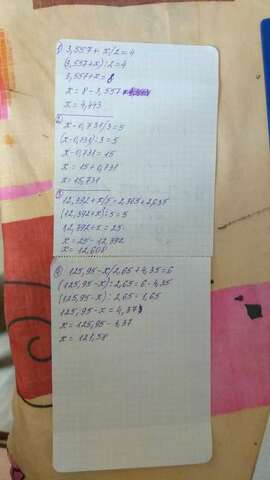 1) 3,557 + x/2 = 4
(3,557+x) : 2 = 4
3,557 + x = 8
x = 8 - 3,557
x = 4,443
2)
x - 0,731/3 = 5
(x - 0,731) : 3 = 5
x - 0,731 = 15
x = 15 + 0,731
x = 15,731
3)
12,392 + x/5 = 2,365 + 2,635
(12,392 + x) : 5 = 5
12,392 + x = 25
x = 25 - 12,392
x = 12,608
4) 125,95 - x/2,65 + 4,35 = 6
(125,95 - x) : 2,65 = 6 - 4,35
(125,95 - x) : 2,65 = 1,65
125,95 - x = 4,373
x = 125,95 - 4,37
x = 121,58